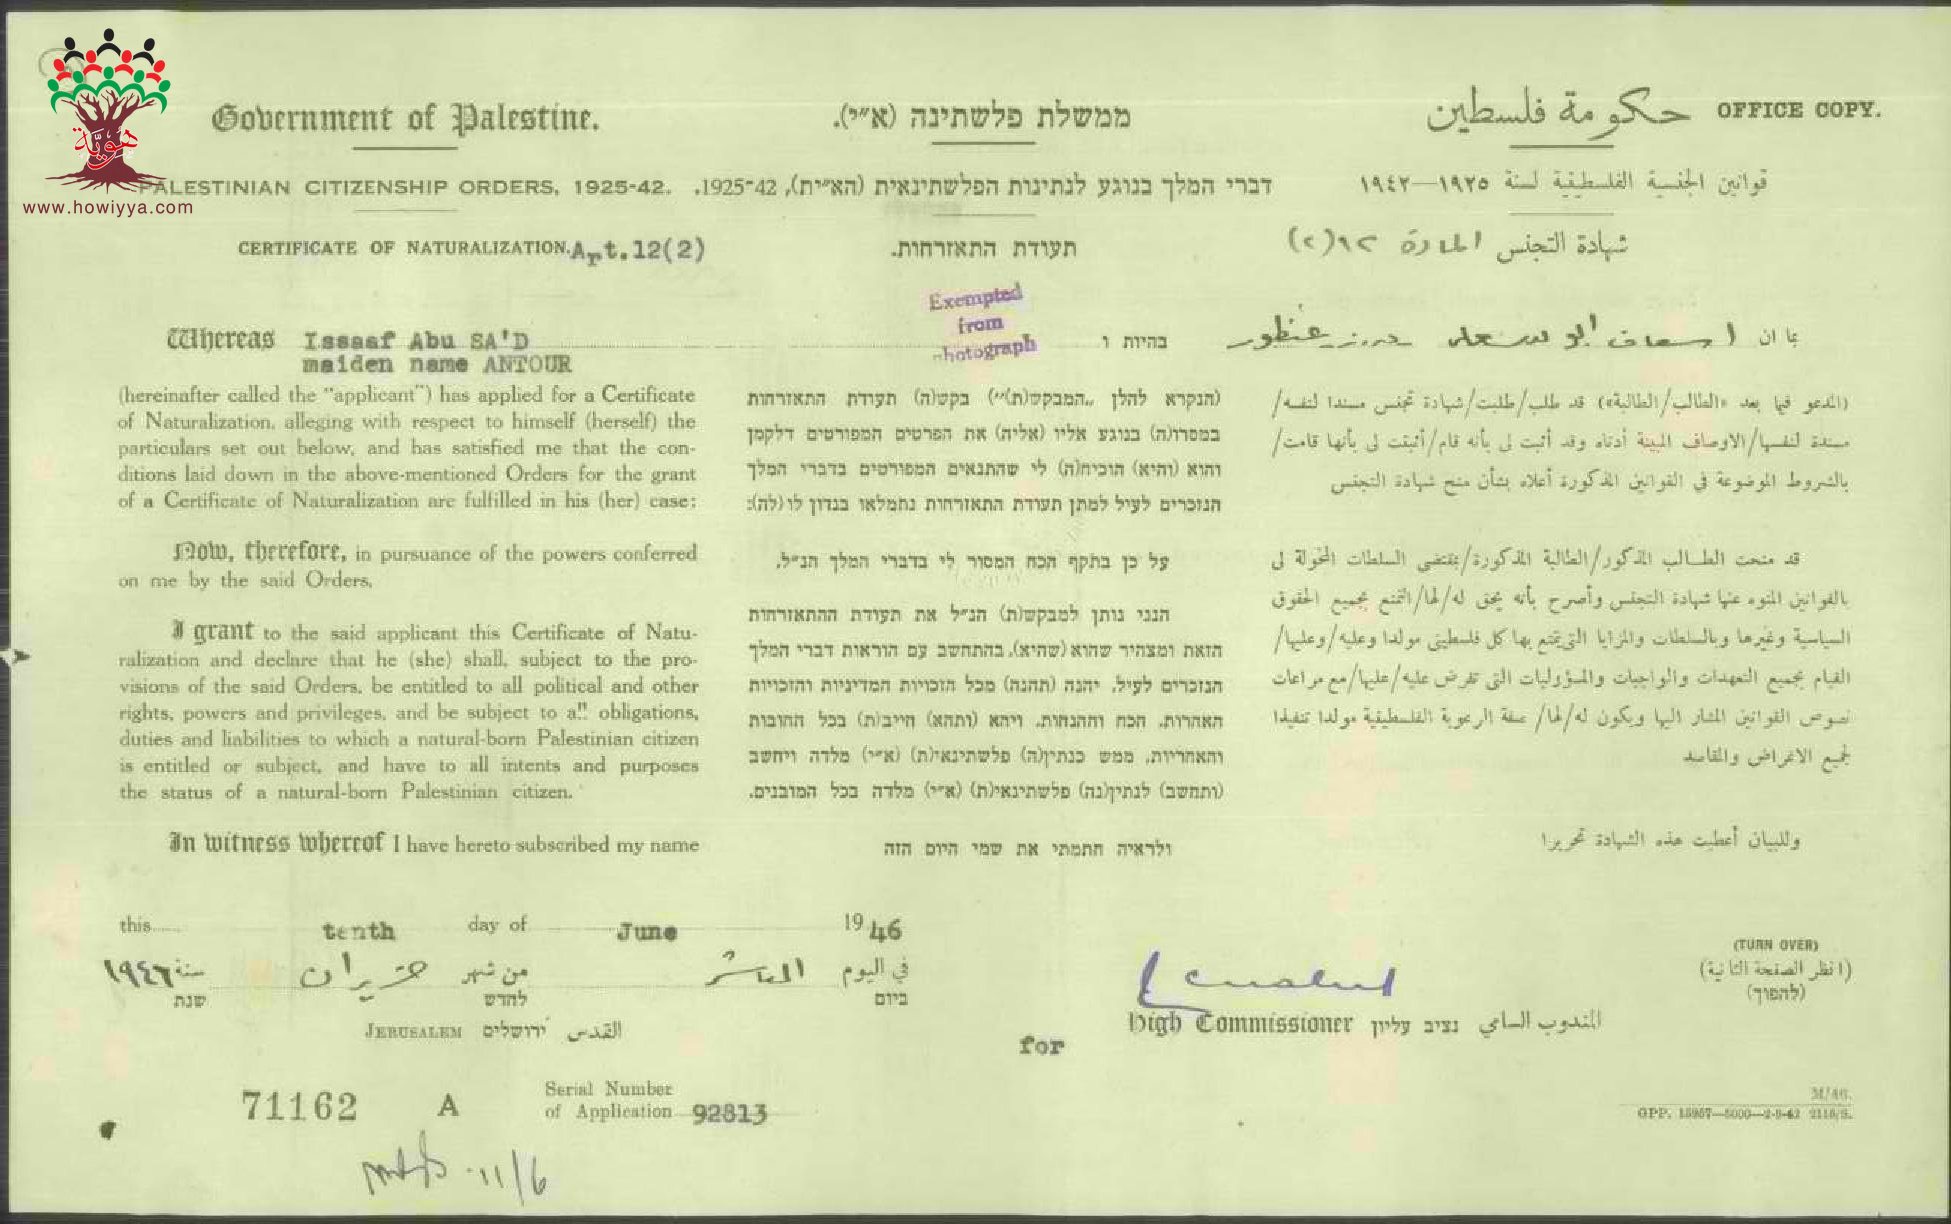 هويّة
www.howiyya.com
Government of Palestine.
ממשלת פלשתינה (א״י).
حكومة فلسطين
OFFICE COPY.
PALESTINIAN CITIZENSHIP ORDERS, 1925-42.
דברי המלך בנוגע לנתינות הפלשתינאית (הא״ית), 1925-42.
قوانين الجنسية الفلسطينية لسنة ١٩٢٥—١٩٤٢
CERTIFICATE OF NATURALIZATION. Art.12(2)
תעודת התאזרחות.
شهادة التجنس المادة ١٢(٢)
Exempted
from
photograph
Whereas Issaaf Abu SA'D
maiden name ANTOUR
(hereinafter called the "applicant") has applied for a Certificate
of Naturalization, alleging with respect to himself (herself) the
particulars set out below, and has satisfied me that the con-
ditions laid down in the above-mentioned Orders for the grant
of a Certificate of Naturalization are fulfilled in his (her) case:
Now, therefore, in pursuance of the powers conferred
on me by the said Orders,
I grant to the said applicant this Certificate of Natu-
ralization and declare that he (she) shall, subject to the pro-
visions of the said Orders, be entitled to all political and other
rights, powers and privileges, and be subject to all obligations,
duties and liabilities to which a natural-born Palestinian citizen
is entitled or subject, and have to all intents and purposes
the status of a natural-born Palestinian citizen.
In witness whereof I have hereto subscribed my name
בהיות ו
(הנקרא להלן „המבקש(ת)״) בקש(ה) תעודת התאזרחות
במסרו(ה) בנוגע אליו (אליה) את הפרטים המפורטים דלקמן
והוא (והיא) הוכיח(ה) לי שהתנאים המפורטים בדברי המלך
הנזכרים לעיל למתן תעודת התאזרחות נתמלאו בנדון לו (לה):
על כן בתקף הכח המסור לי בדברי המלך הנ״ל,
הנני נותן למבקש(ת) הנ״ל את תעודת ההתאזרחות
הזאת ומצהיר שהוא (שהיא), בהתחשב עם הוראות דברי המלך
הנזכרים לעיל, יהנה (תהנה) מכל הזכויות המדיניות והזכויות
האחרות, הכח וההנחות, ויהא (ותהא) חייב(ת) בכל החובות
והאחריות, ממש כנתין(ה) פלשתינאי(ת) (א״י) מלדה ויחשב
(ותחשב) לנתין(נה) פלשתינאי(ת) (א״י) מלדה בכל המובנים.
ולראיה חתמתי את שמי היום הזה
بما ان اسعاف ابو سعد
(المدعو فيما بعد «الطالب/الطالبة») قد طلب/طلبت/شهادة تجنس مسندا لنفسه/
مسندة لنفسها/الاوصاف المبينة أدناه وقد أثبت لى بأنه قام/أثبتت لى بأنها قامت/
بالشروط الموضوعة في القوانين المذكورة أعلاه بشأن منح شهادة التجنس
قد منحت الطالب المذكور/الطالبة المذكورة/بمقتضى السلطات المخولة لى
بالقوانين المنوه عنها شهادة التجنس وأصرح بأنه يحق له/لها/التمتع بجميع الحقوق
السياسية وغيرها وبالسلطات والمزايا التى يتمتع بها كل فلسطينى مولدا وعليه/وعليها/
القيام بجميع التعهدات والواجبات والمسؤوليات التى تفرض عليه/عليها/مع مراعات
نصوص القوانين المشار اليها ويكون له/لها/ صفة الرعوية الفلسطينية مولدا تنفيذا
لجميع الاغراض والمقاصد
وللبيان أعطيت هذه الشهادة تحريرا
this tenth day of June 1946
في اليوم العاشر من شهر حزيران سنة ١٩٤٦
ביום לחדש שנת
JERUSALEM ירושלים القدس
for High Commissioner נציב עליון المندوب السامي
(TURN OVER)
(انظر الصفحة الثانية)
(להפוך)
71162 A
Serial Number
of Application 92813
11/6
M/46.
GPP. 15957—5000—2-9-42 2116/S.